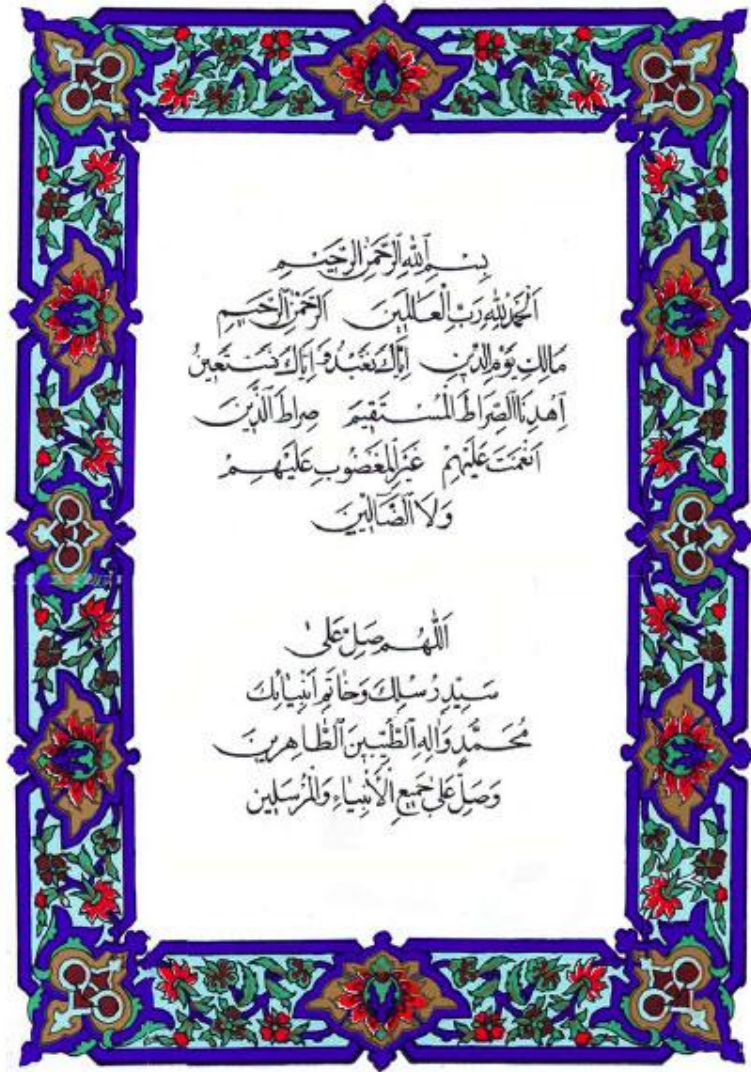 بِسْمِ ٱللّٰهِ ٱلرَّحْمٰنِ ٱلرَّحِیمِ
اَلْحَمْدُ لِلّٰهِ رَبِّ ٱلْعَالَمِینَ اَلرَّحْمٰنِ ٱلرَّحِیمِ
مَالِكِ یَوْمِ ٱلدِّینِ اِیَّاكَ نَعْبُدُ وَ اِیَّاكَ نَسْتَعِینُ
اِهْدِنَا ٱلصِّرَاطَ ٱلْمُسْتَقِیمَ صِرَاطَ ٱلَّذِینَ
اَنْعَمْتَ عَلَیْهِمْ غَیْرِ ٱلْمَغْضُوبِ عَلَیْهِمْ
وَلَا ٱلضَّآلِّینَ
اَللّٰهُمَّ صَلِّ عَلىٰ
سَیِّدِ رُسُلِكَ وَخَاتَمِ اَنْبِیَائِكَ
مُحَمَّدٍ وَاٰلِهِ ٱلطَّیِّبِینَ ٱلطَّاهِرِینَ
وَصَلِّ عَلىٰ جَمِیعِ ٱلْأَنْبِیَاءِ وَٱلْمُرْسَلِین